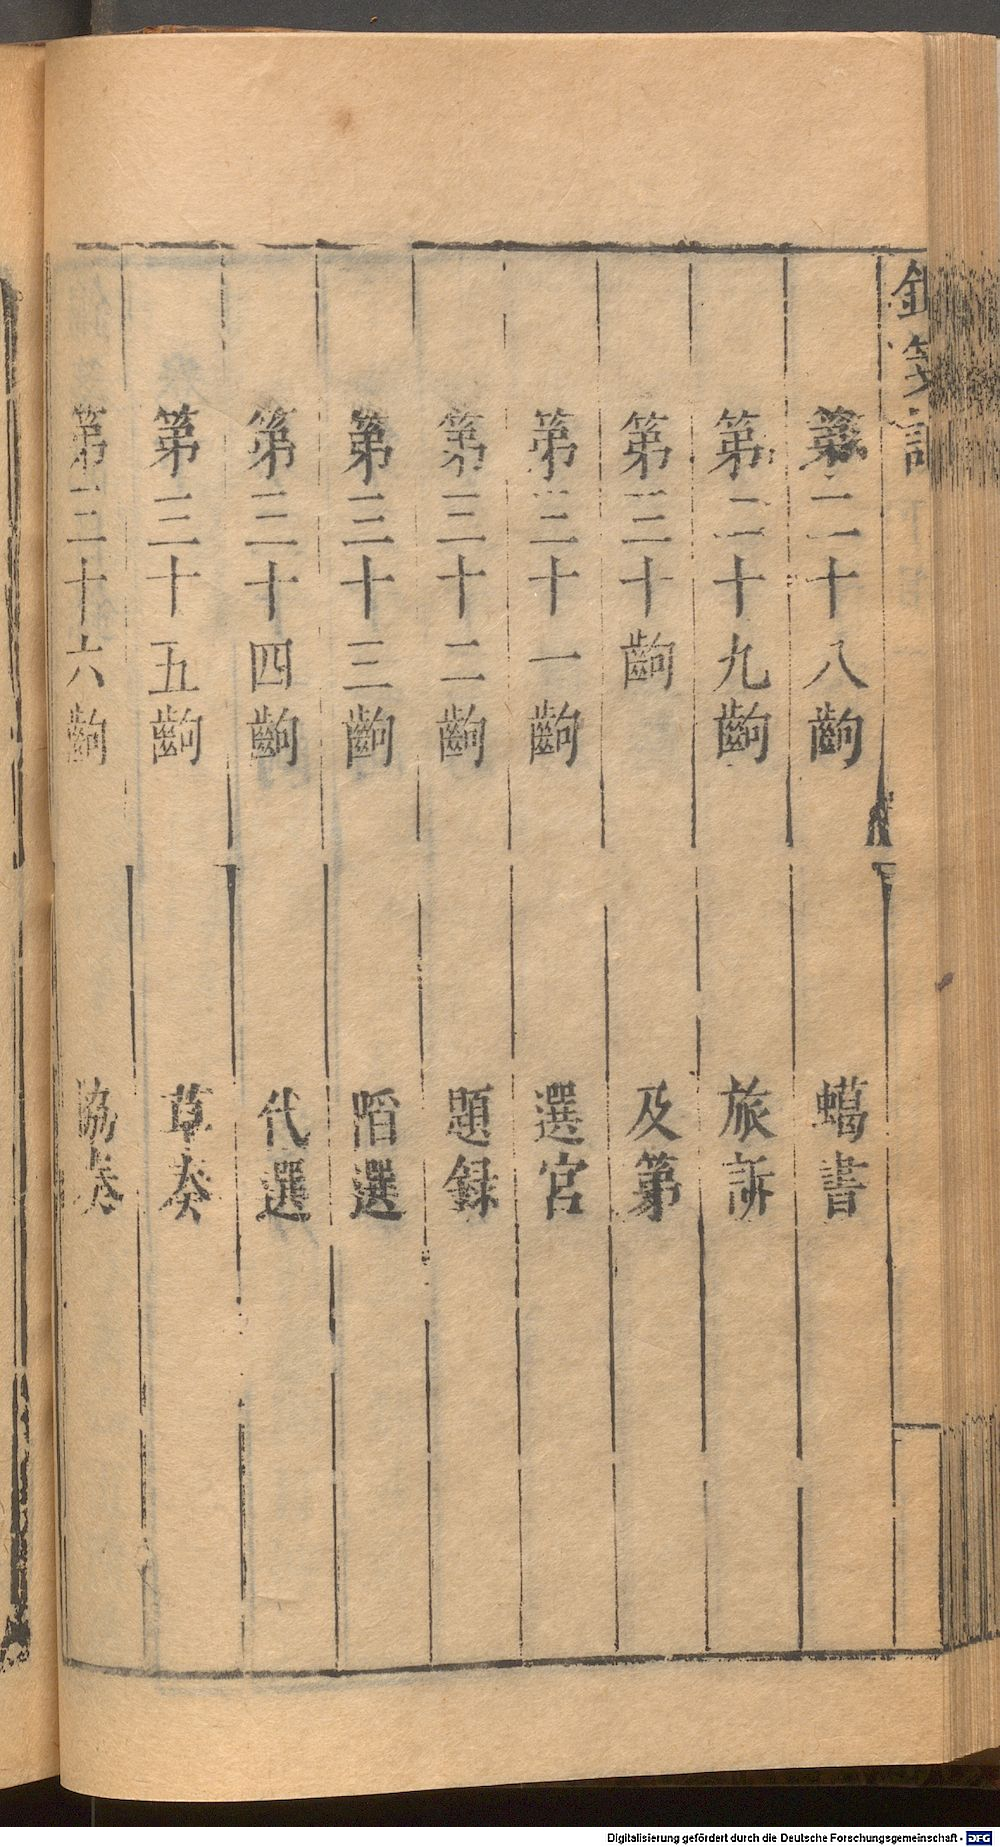 箋記
第二十八齣 蠟書
第二十九齣 旅訴
第三十齣 及第
第三十一齣 選宮
第三十二齣 題録
第三十三齣 選
第三十四齣 代選
第三十五齣 草奏
第三十六齣
Digitalisierung gefördert durch die Deutsche Forschungsgemeinschaft - DFG